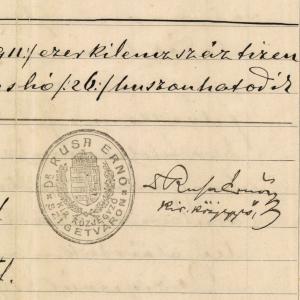 911:/ ezer kilencz száz tizen
hó /:26:/ huszonhatodik
DR RUSA ERNŐ
KIR. KÖZJEGYZŐ
SZIGETVÁRON
Dr Rusa Ernő
kir. közjegyző